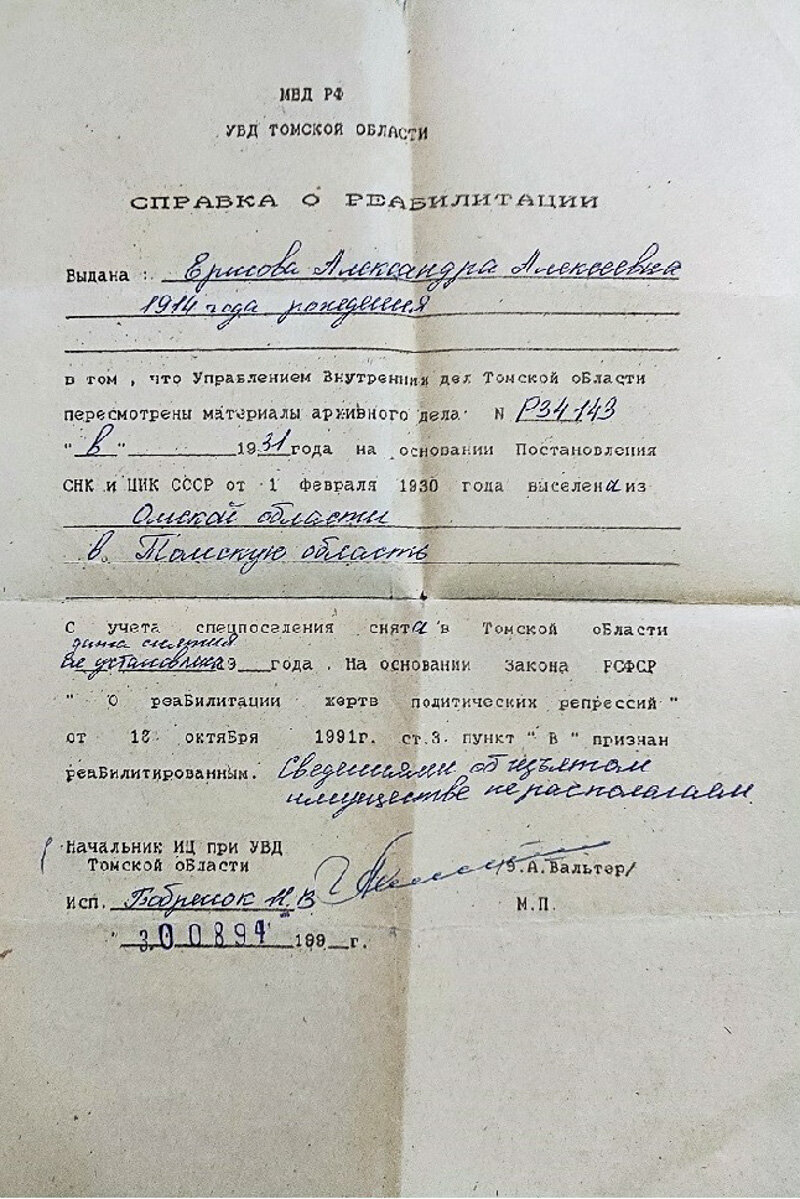 МВД РФ
УВД ТОМСКОЙ ОБЛАСТИ
СПРАВКА О РЕАБИЛИТАЦИИ
Выдана : Ершова Александра Алексеевна
1914 года рождения
в том , что Управлением Внутренних дел Томской оБласти
пересмотрены материалы архивного дела N Р34143
" в " 1931 года на основании Постановления
СНК и ЦИК СССР от 1 февраля 1930 года выселена из
Омской области
в Томскую область
С учета спецпоселения снята в Томской оБласти
дата снятия
не установлена 9 года . На основании Закона РСФСР
" О реаБилитации жертв политических репрессий "
от 18 октяБря 1991г. ст.3. пункт " В " признан
реаБилитированным. Сведениями об изъятом
имуществе не располагаем
Начальник ИЦ при УВД
Томской оБласти /Э.А.Вальтер/
исп. Н.В
М.П.
" 300894 199 г.